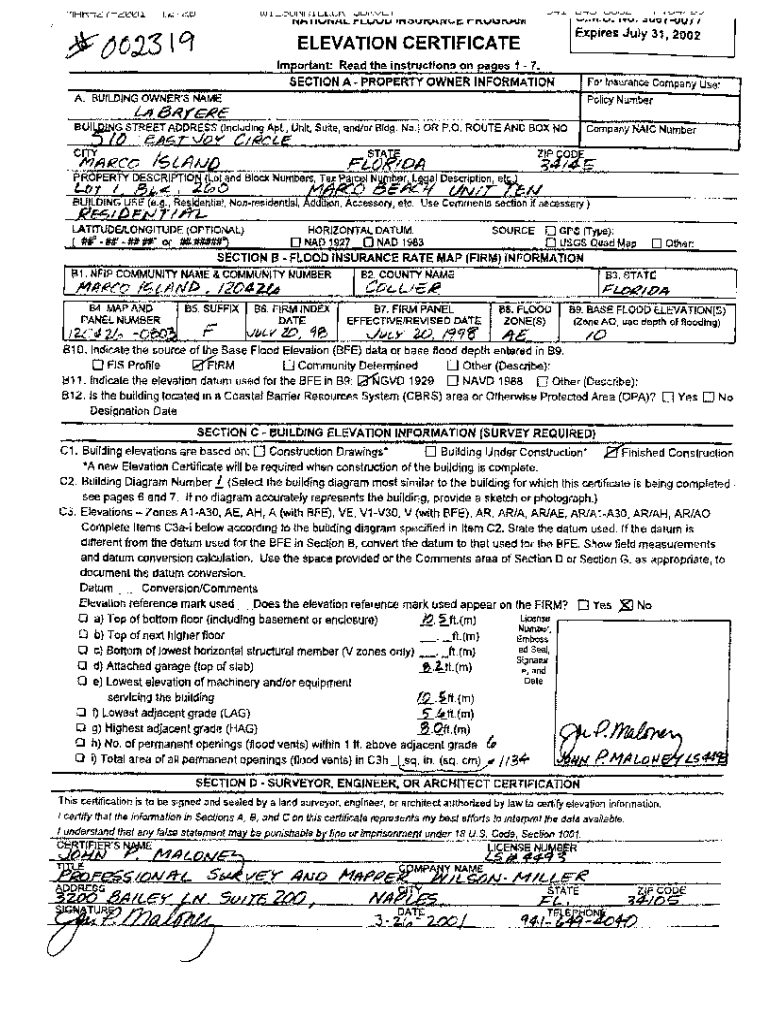 MAR-27-2001
NATIONAL FLOOD INSURANCE PROGRAM
# 002319
ELEVATION CERTIFICATE
O.M.B. No. 3067-0077
Expires July 31, 2002
Important: Read the instructions on pages 1 - 7.
SECTION A - PROPERTY OWNER INFORMATION
For Insurance Company Use:
A. BUILDING OWNER'S NAME
Policy Number
LA BAYERE
BUILDING STREET ADDRESS (Including Apt., Unit, Suite, and/or Bldg. No.) OR P.O. ROUTE AND BOX NO
Company NAIC Number
510 EAST JOY CIRCLE
CITY STATE ZIP CODE
MARCO ISLAND FLORIDA 34145
PROPERTY DESCRIPTION (Lot and Block Numbers, Tax Parcel Number, Legal Description, etc.)
LOT 1, BLK. 260 MARCO BEACH UNIT TEN
BUILDING USE (e.g., Residential, Non-residential, Addition, Accessory, etc. Use Comments section if necessary)
RESIDENTIAL
LATITUDE/LONGITUDE (OPTIONAL) HORIZONTAL DATUM: SOURCE: GPS (Type):
( ##° - ##' - ##.##" or ##.#####°) NAD 1927 NAD 1983 USGS Quad Map Other:
SECTION B - FLOOD INSURANCE RATE MAP (FIRM) INFORMATION
B1. NFIP COMMUNITY NAME & COMMUNITY NUMBER B2. COUNTY NAME B3. STATE
MARCO ISLAND, 120426 COLLIER FLORIDA
B4. MAP AND PANEL NUMBER B5. SUFFIX B6. FIRM INDEX DATE B7. FIRM PANEL EFFECTIVE/REVISED DATE B8. FLOOD ZONE(S) B9. BASE FLOOD ELEVATION(S) (Zone AO, use depth of flooding)
120426-0803 F JULY 20, 98 JULY 20, 1998 AE 10
B10. Indicate the source of the Base Flood Elevation (BFE) data or base flood depth entered in B9.
FIS Profile FIRM Community Determined Other (Describe):
B11. Indicate the elevation datum used for the BFE in B9: NGVD 1929 NAVD 1988 Other (Describe):
B12. Is the building located in a Coastal Barrier Resources System (CBRS) area or Otherwise Protected Area (OPA)? Yes No
Designation Date
SECTION C - BUILDING ELEVATION INFORMATION (SURVEY REQUIRED)
C1. Building elevations are based on: Construction Drawings* Building Under Construction* Finished Construction
*A new Elevation Certificate will be required when construction of the building is complete.
C2. Building Diagram Number 1 (Select the building diagram most similar to the building for which this certificate is being completed -
see pages 6 and 7. If no diagram accurately represents the building, provide a sketch or photograph.)
C3. Elevations – Zones A1-A30, AE, AH, A (with BFE), VE, V1-V30, V (with BFE), AR, AR/A, AR/AE, AR/A1-A30, AR/AH, AR/AO
Complete Items C3a-i below according to the building diagram specified in Item C2. State the datum used. If the datum is
different from the datum used for the BFE in Section B, convert the datum to that used for the BFE. Show field measurements
and datum conversion calculation. Use the space provided or the Comments area of Section D or Section G, as appropriate, to
document the datum conversion.
Datum Conversion/Comments
Elevation reference mark used Does the elevation reference mark used appear on the FIRM? Yes No
a) Top of bottom floor (including basement or enclosure) 10.5 ft.(m)
b) Top of next higher floor ft.(m)
c) Bottom of lowest horizontal structural member (V zones only) ft.(m)
d) Attached garage (top of slab) 8.2 ft.(m)
e) Lowest elevation of machinery and/or equipment
servicing the building 10.5 ft.(m)
f) Lowest adjacent grade (LAG) 5.6 ft.(m)
g) Highest adjacent grade (HAG) 8.0 ft.(m)
h) No. of permanent openings (flood vents) within 1 ft. above adjacent grade 6
i) Total area of all permanent openings (flood vents) in C3h sq. in. (sq. cm) 1134
License Number, Embossed Seal, Signature, and Date
John P. Maloney
JOHN P. MALONEY LS 4493
SECTION D - SURVEYOR, ENGINEER, OR ARCHITECT CERTIFICATION
This certification is to be signed and sealed by a land surveyor, engineer, or architect authorized by law to certify elevation information.
I certify that the information in Sections A, B, and C on this certificate represents my best efforts to interpret the data available.
I understand that any false statement may be punishable by fine or imprisonment under 18 U.S. Code, Section 1001.
CERTIFIER'S NAME LICENSE NUMBER
JOHN P. MALONEY LS# 4493
TITLE COMPANY NAME
PROFESSIONAL SURVEY AND MAPPER WILSON-MILLER
ADDRESS CITY STATE ZIP CODE
3200 BAILEY LN SUITE 200, NAPLES FL. 34105
SIGNATURE DATE TELEPHONE
John P. Maloney 3-26-2001 941-649-4040